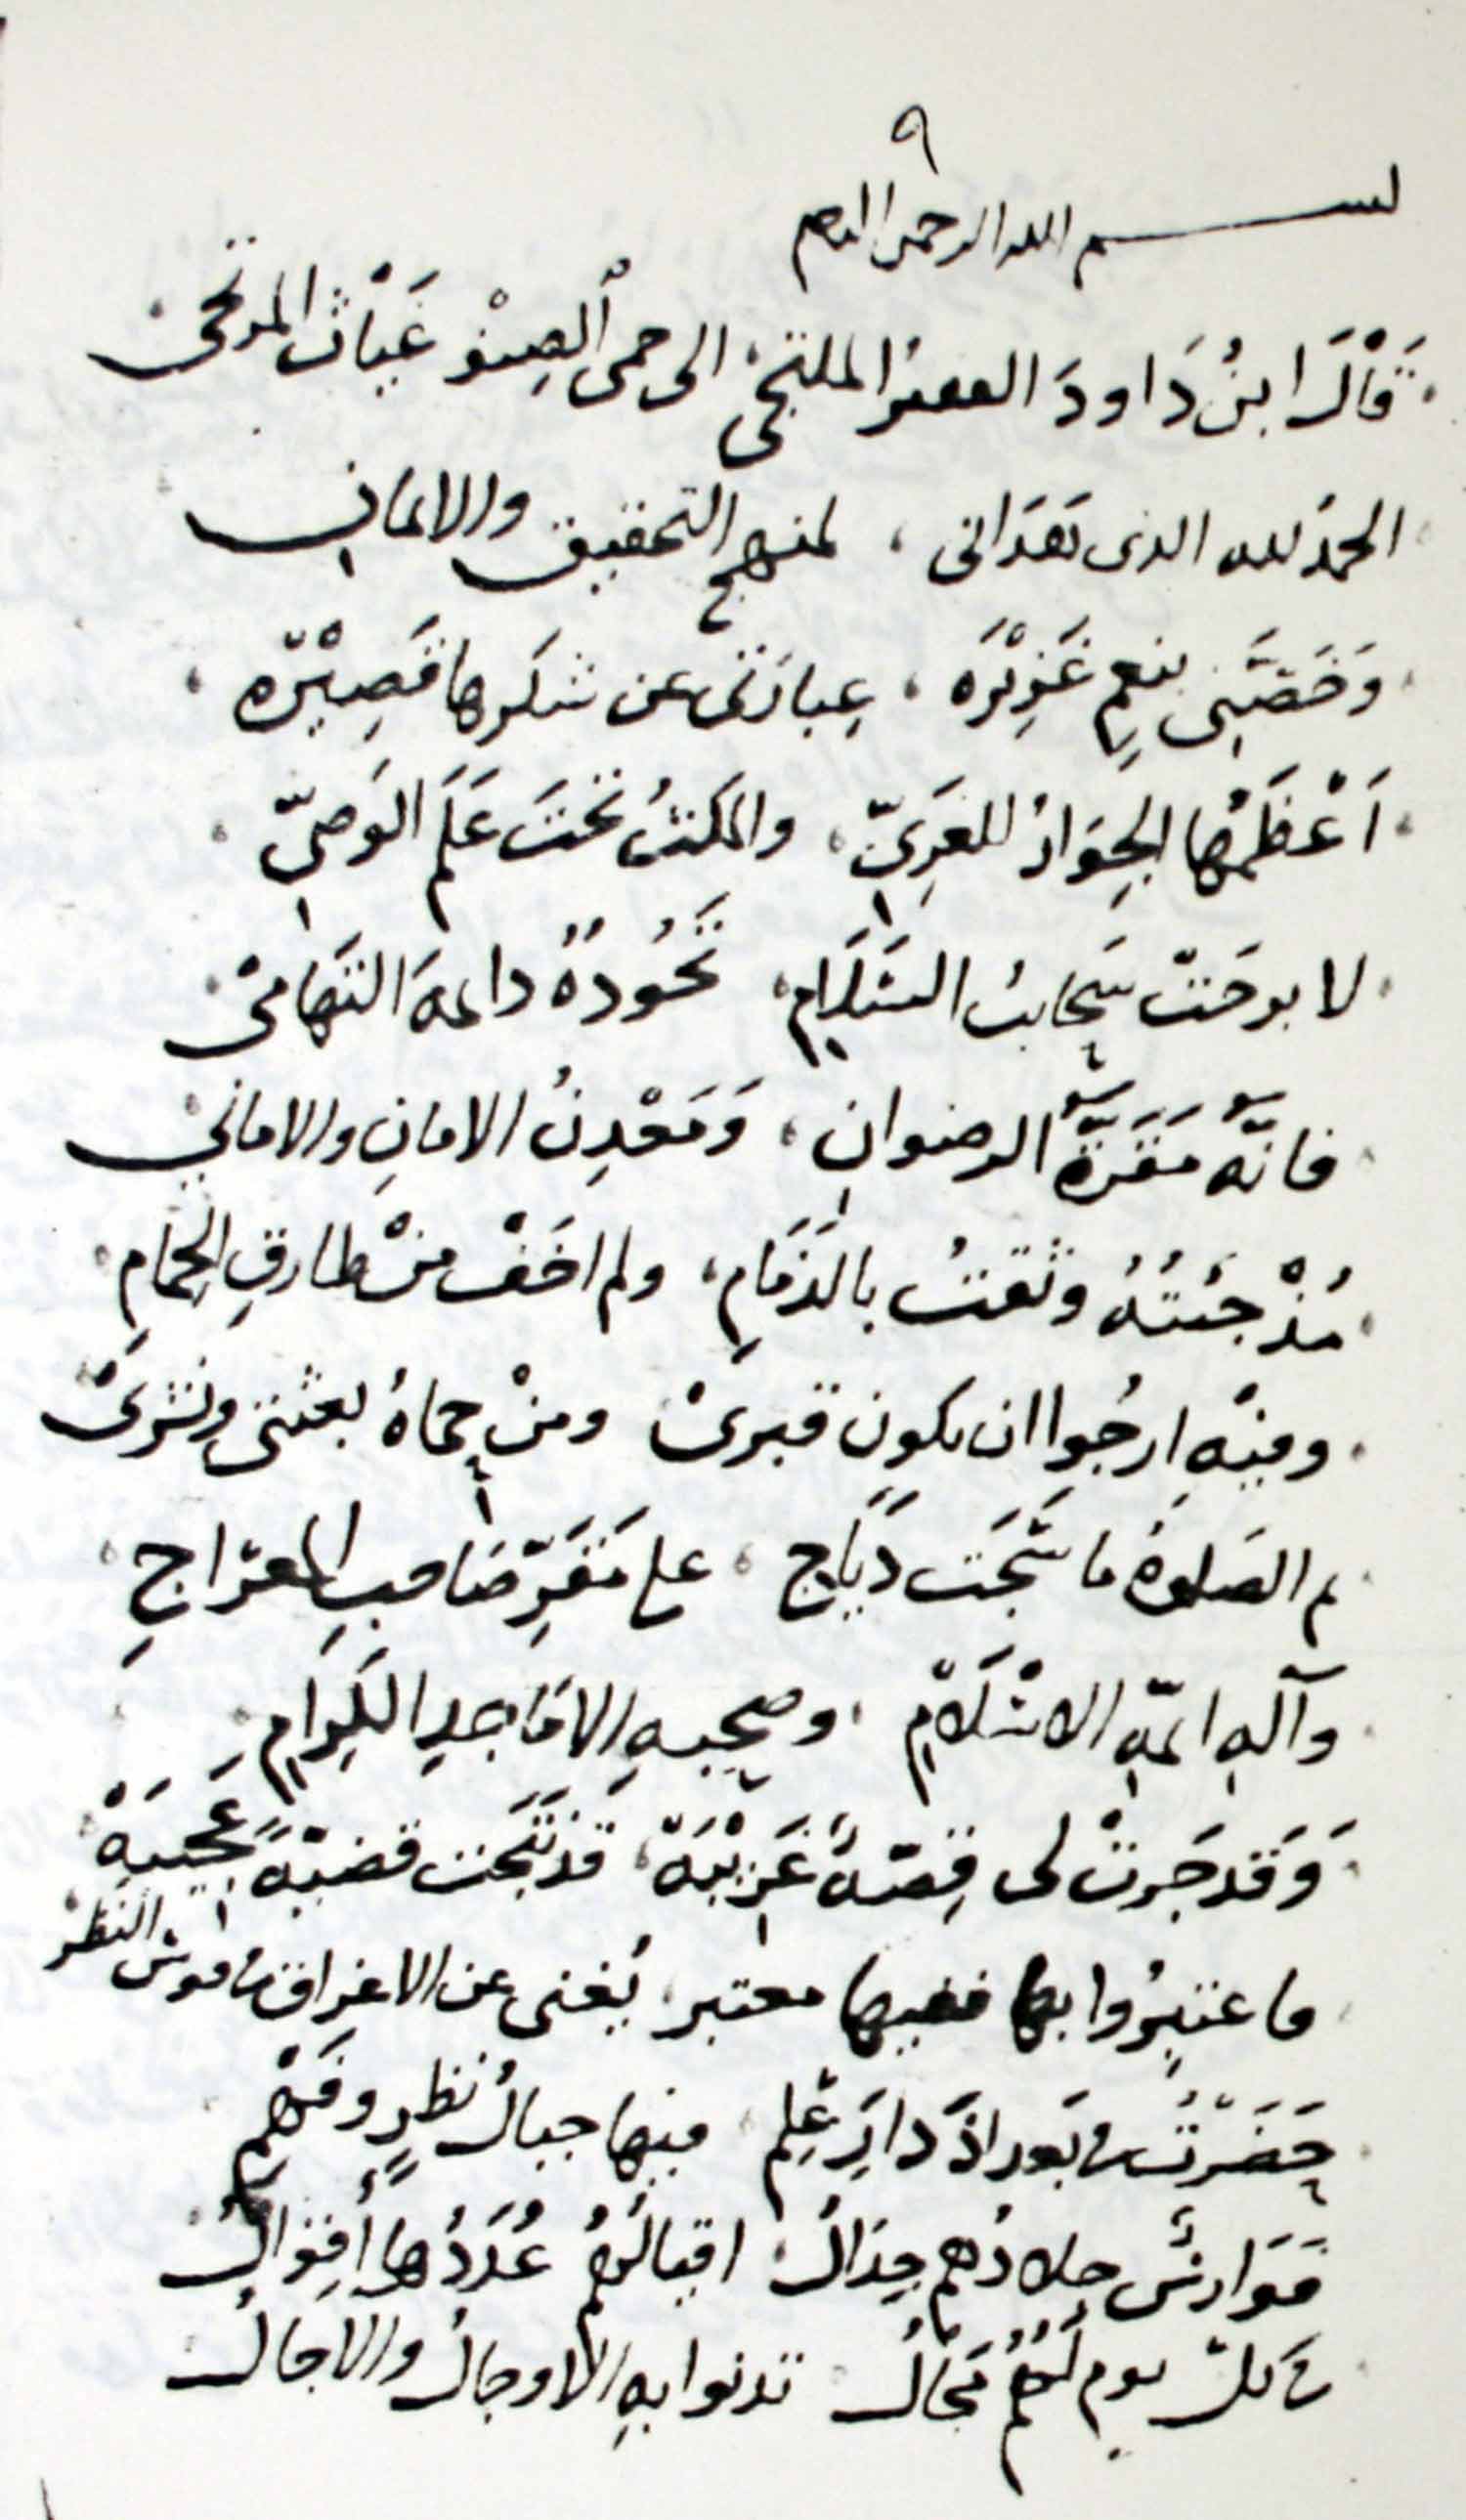 ٩
بسم الله الرحمن الرحيم
قَالَ ابنُ دَاودَ الفقيرُ الملتجي الى حمى الصِنْوِ غَيَاث المرتجي
الحمدُ لله الذى هَدَانى ، لمنهج التحقيق والايمان
وَخَصَّنى بنعمٍ غَزِيْرَه ، عِبارَتى عن شكرها قَصِيْرَه ،
اَعْظَمُها الجِوَارُ للغَرِيّ ، والمكثُ تَحتَ عَلَمِ الوَصِيّ
لا برحَتْ سَحَايبُ السَلَامِ ، تَجُودُهُ دايمةَ التَهامىْ
فانّه مَقَرّةُ الرضوانِ ، وَمَعْدِنُ الامانِ والامانىْ
مُذْ جئتُهُ وثقتُ بالذِمَامِ ، ولم اخَفْ منْ طارقِ الحِمَامِ
وفيْهِ ارجُوا ان يكون قبرىْ ومنْ حِماهُ بعثتى ونشرىْ
ثم الصَلوةُ ما سَجَت دَيَاج ، على مَقَرِّ صَاحبِ المعرَاجِ
وآلهِ ايمّةِ الاسْلَامِ ، وصحبهِ الامَاجدِ الكِرَامِ
وَقَد جَرتْ لى قِصّةٌ غَرِيْبَهْ ، قَد نَتَجَت قضيّةً عَجِيْبَهْ
فاعتبِرُوا بها ففيها معتبر ، يُغنى عن الاغراق فى قوس النظرْ
حَضَرتُ فى بَغدادَ دارَ عِلمِ فيها جبالُ نظرٍ وفَهْمِ
فَوَارسٌ جلادُهم جِدَالُ اقيالُهمُ عُدَدُها أَقوَالُ
فى كلّ يوم لهُمُ مَجَالُ تدنوا بهِ الاوجالُ والاجالُ